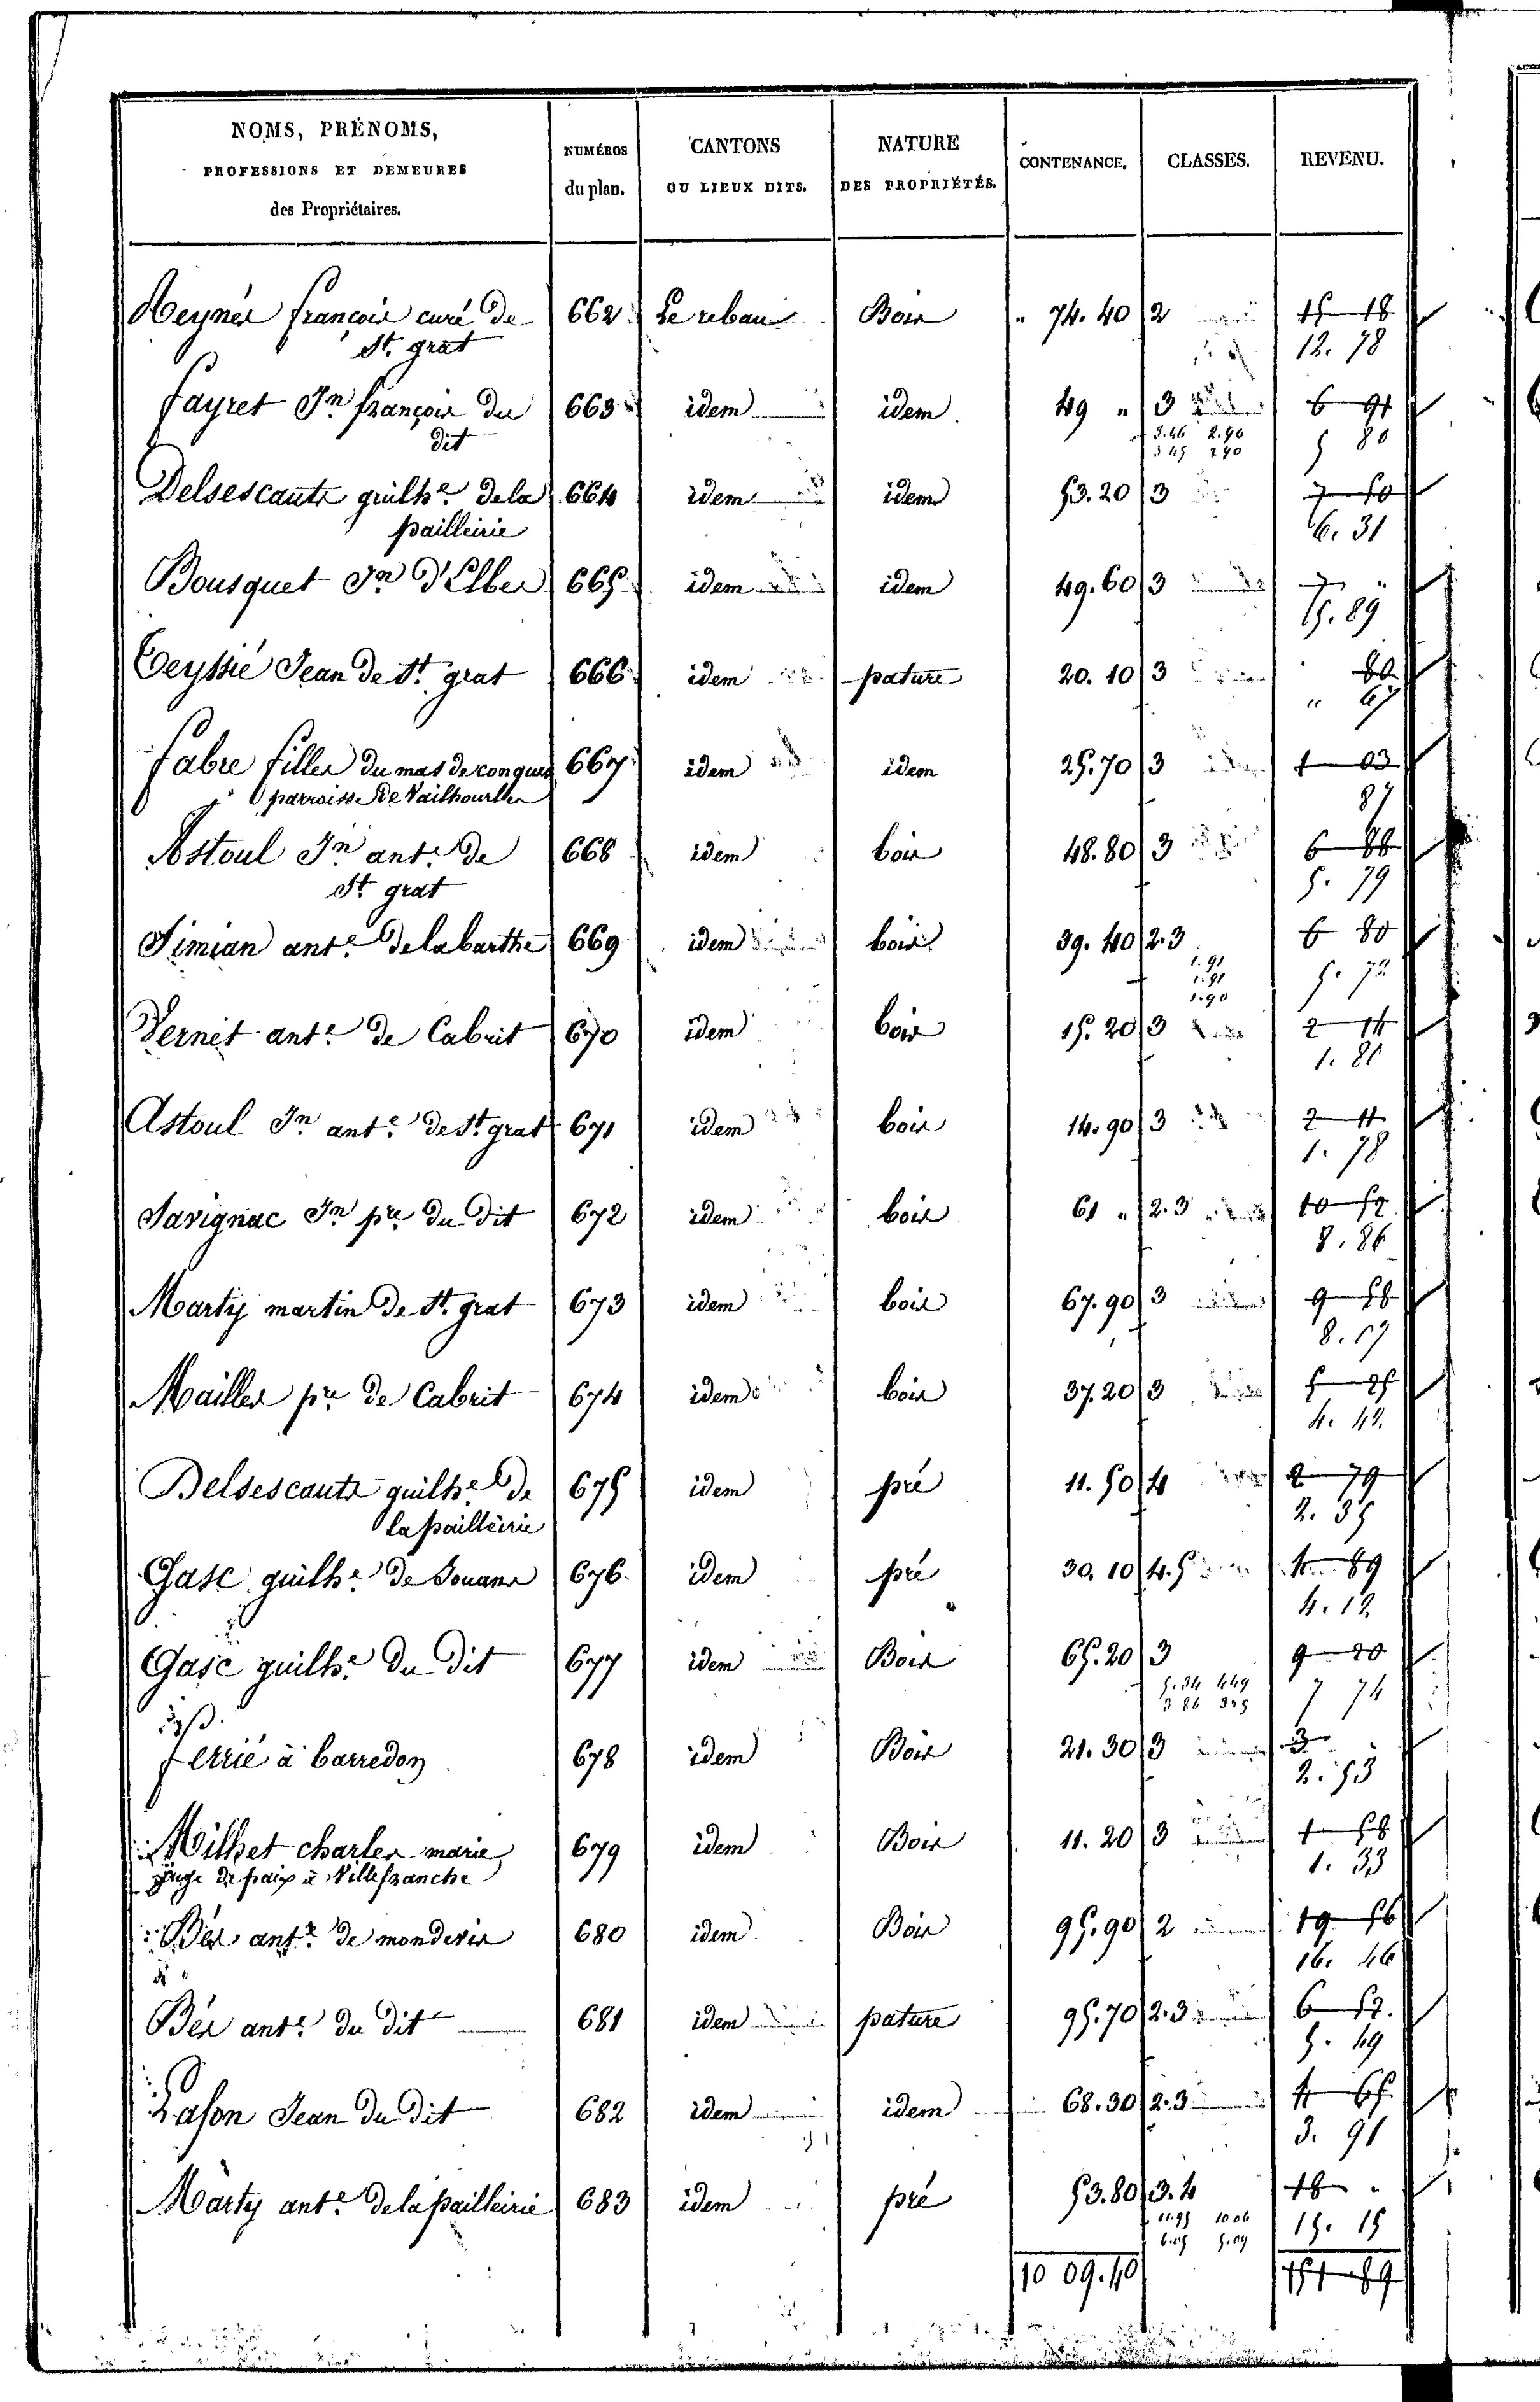 NOMS, PRÉNOMS, PROFESSIONS ET DEMEURES des Propriétaires. NUMÉROS du plan. CANTONS OU LIEUX DITS. NATURE DES PROPRIÉTÉS. CONTENANCE. CLASSES. REVENU.
françois curé de 662 Bois " 74. 40 2 15 18
St. grat 12. 78
fayret Jn françois du 663 idem idem 49 " 3 6 91
dit 3.46 2.90 5 80
3 45 2 90
Delsescauts guilhe. de la 664 idem idem 53. 20 3 7 50
pailleirie 6. 31
Bousquet Jn D'Elbes 665 idem idem 49. 60 3 7 "
5. 89
Teyssié Jean de St. grat 666 idem pature 20. 10 3 " 80
" 67
fabre filles du mas de conques 667 idem idem 25. 70 3 1 03
parroisse de Vailhourlhes 87
Astoul Jn ante. de 668 idem bois 48. 80 3 6 88
St. grat 5. 79
Simian ante. de la barthe 669 idem bois 39. 40 2.3 6 80
1.91 5. 72
1.91
1.90
Vernet ante. de Cabrit 670 idem bois 15. 20 3 2 14
1. 81
Astoul Jn ante. de St. grat 671 idem bois 14. 90 3 2 11
1. 78
Savignac Jn pre. du dit 672 idem bois 61 " 2.3 10 52
8. 86
Marty martin de St. grat 673 idem bois 67. 90 3 9 58
8. 07
Mailles pre. de Cabrit 674 idem bois 37. 20 3 5 25
4. 42
Delsescauts guilhe. de 675 idem pré 11. 50 4 2 79
la pailleirie 2. 35
Gasc guilhe. de 676 idem pré 30. 10 4.5 4 89
4. 12
Gasc guilhe. du dit 677 idem Bois 65. 20 3 9 20
5.34 4 49 7 74
3 86 3 25
ferrié à barredon 678 idem Bois 21. 30 3 3
2. 53
Milhet charles marie 679 idem Bois 11. 20 3 1 58
juge de paix à Villefranche 1. 33
Bés ante. de mondesis 680 idem Bois 95. 90 2 19 56
16. 46
Bés ante. du dit 681 idem pature 95. 70 2.3 6 52
5. 49
Lafon Jean du dit 682 idem idem 68. 30 2.3 4 65
3. 91
Marty ante. de la pailleirie 683 idem pré 53. 80 3.4 18 "
11.95 10 06 15. 15
6.05 5.09
10 09. 40 151 89